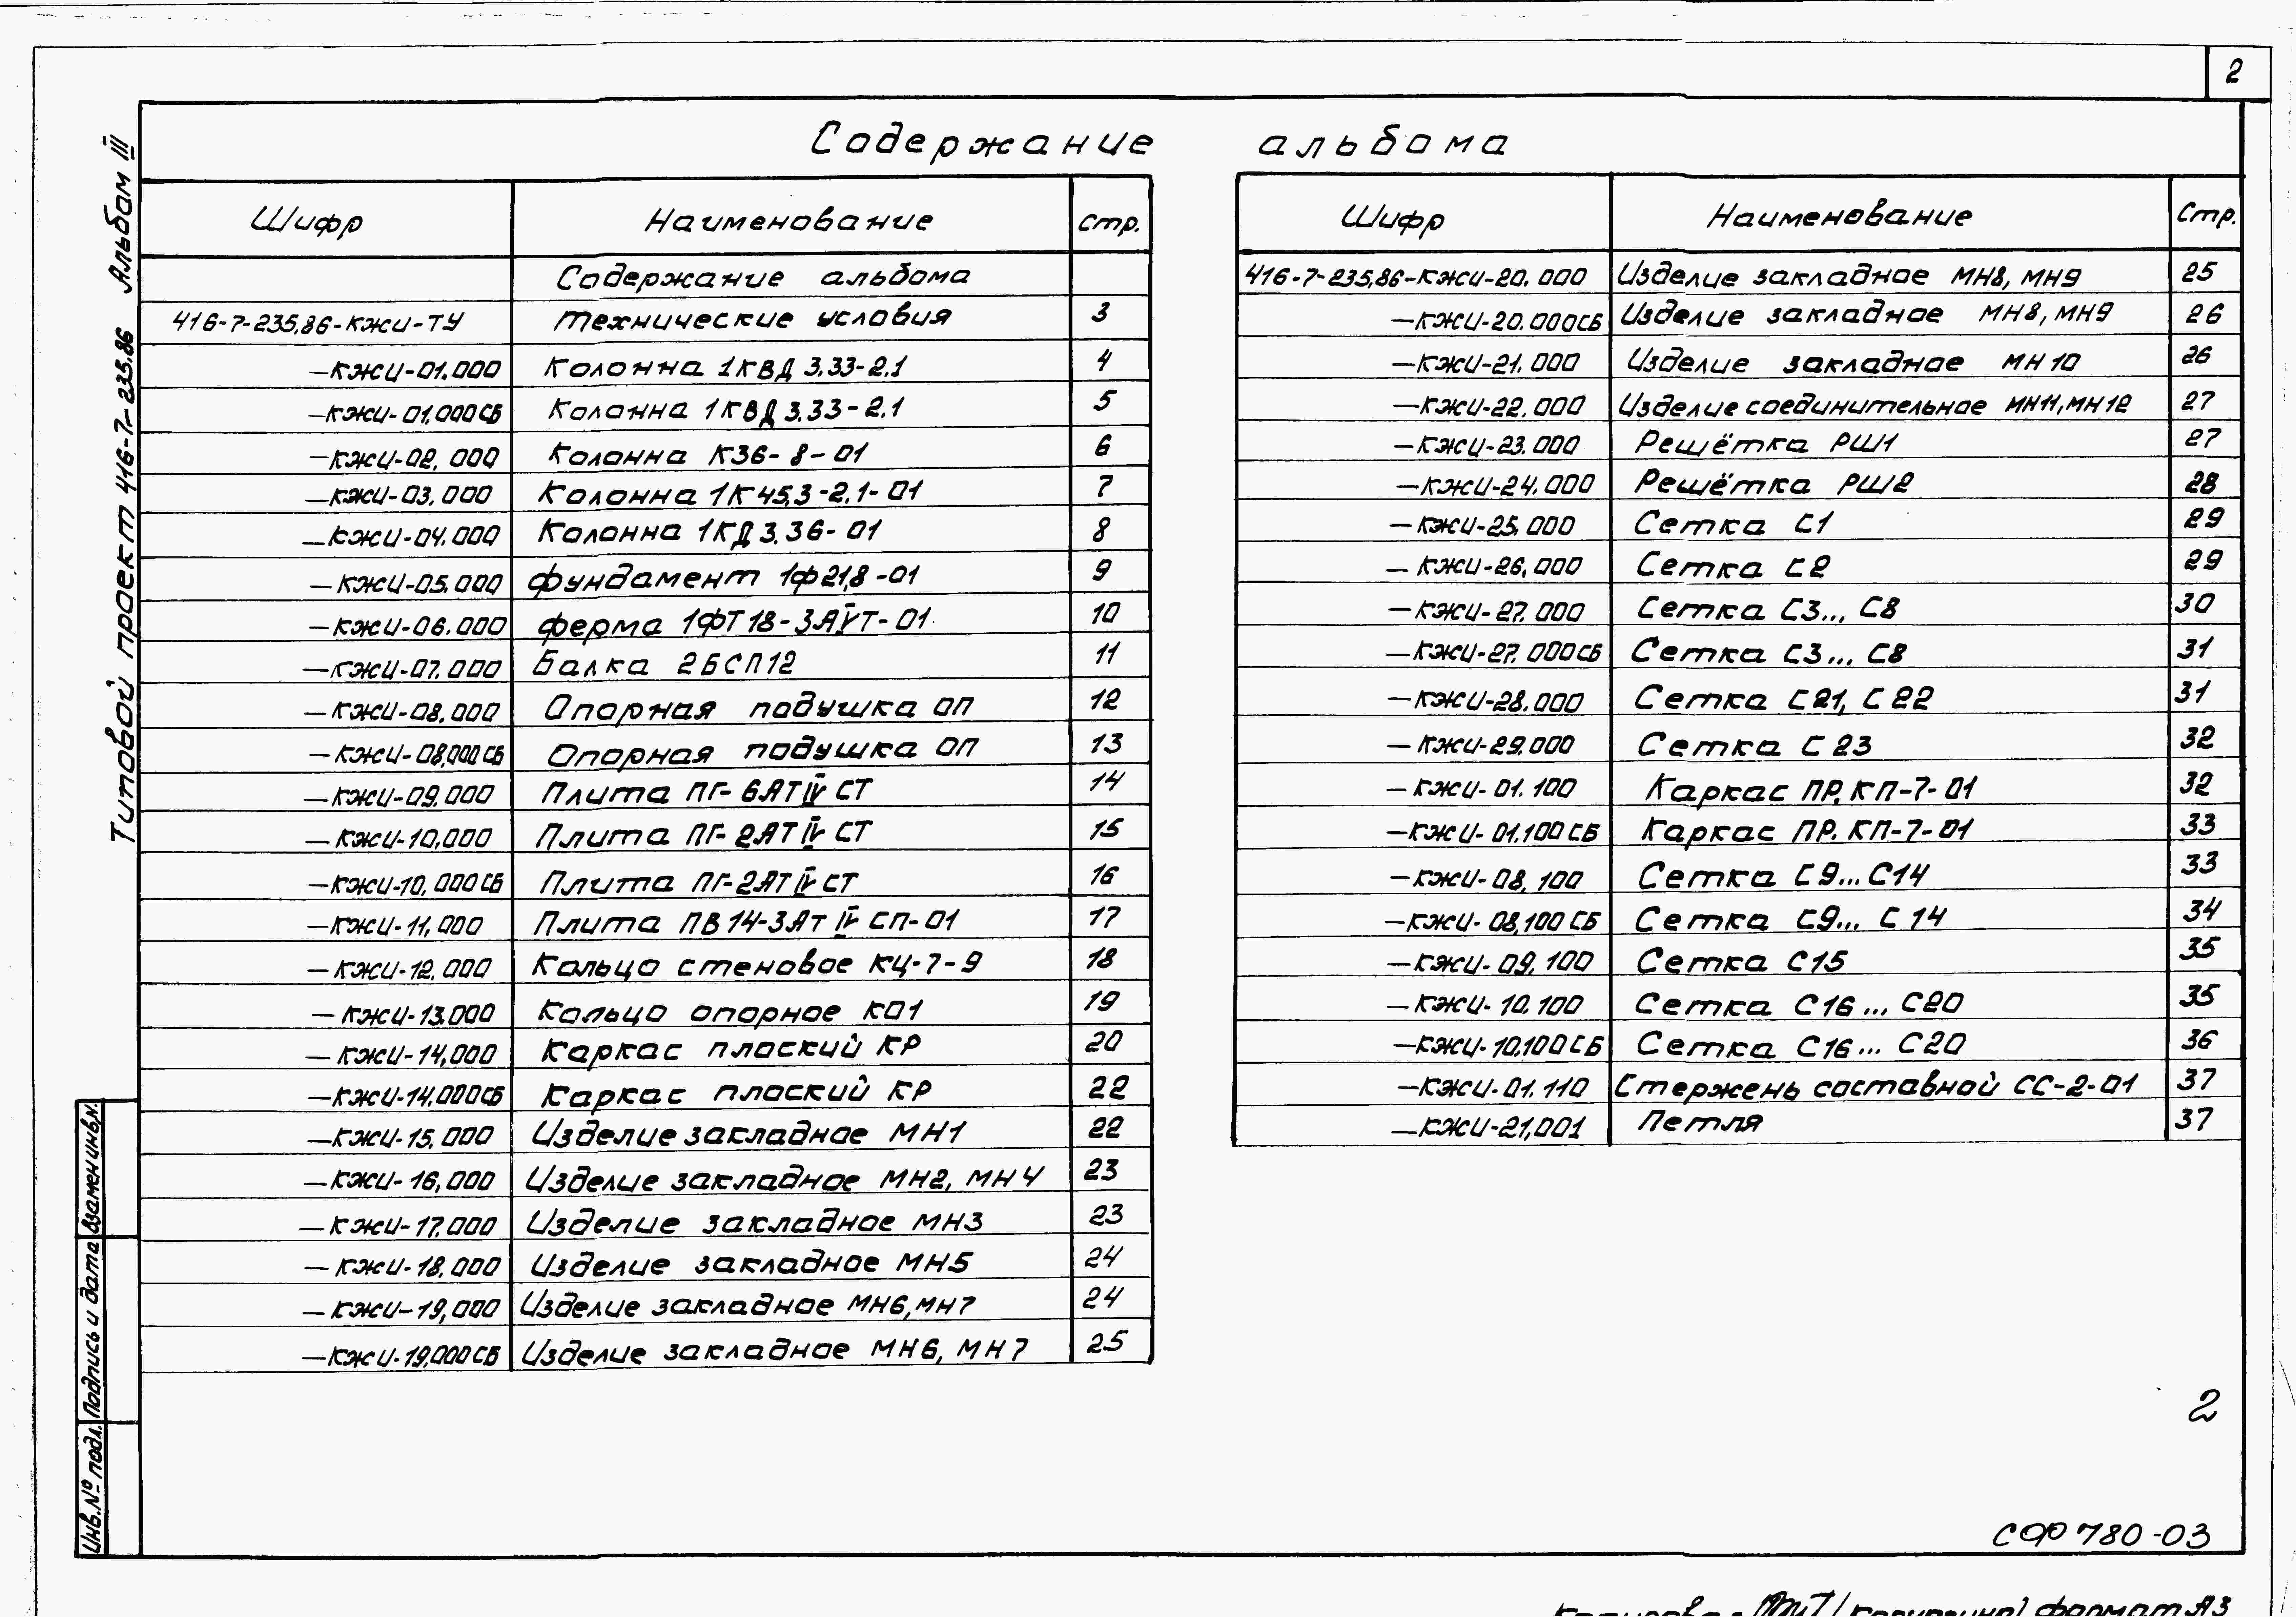 2
Содержание альбома
Шифр Наименование Стр.
Содержание альбома
416-7-235,86-КЖИ-ТУ Технические условия 3
—КЖИ-01.000 Колонна 1КВД 3.33-2.1 4
—КЖИ-01.000СБ Колонна 1КВД 3.33-2.1 5
—КЖИ-02.000 Колонна К36-8-01 6
—КЖИ-03.000 Колонна 1К45.3-2.1-01 7
—КЖИ-04.000 Колонна 1КД 3.36-01 8
—КЖИ-05.000 Фундамент 1Ф21,8-01 9
—КЖИ-06.000 Ферма 1ФТ18-3АIVТ-01 10
—КЖИ-07.000 Балка 2БСП12 11
—КЖИ-08.000 Опорная подушка ОП 12
—КЖИ-08.000СБ Опорная подушка ОП 13
—КЖИ-09.000 Плита ПГ-6АТIVСТ 14
—КЖИ-10.000 Плита ПГ-2АТIVСТ 15
—КЖИ-10.000СБ Плита ПГ-2АТIVСТ 16
—КЖИ-11.000 Плита ПВ14-3АТIVСП-01 17
—КЖИ-12.000 Кольцо стеновое КЦ-7-9 18
—КЖИ-13.000 Кольцо опорное КО1 19
—КЖИ-14.000 Каркас плоский КР 20
—КЖИ-14.000СБ Каркас плоский КР 22
—КЖИ-15.000 Изделие закладное МН1 22
—КЖИ-16.000 Изделие закладное МН2, МН4 23
—КЖИ-17.000 Изделие закладное МН3 23
—КЖИ-18.000 Изделие закладное МН5 24
—КЖИ-19.000 Изделие закладное МН6, МН7 24
—КЖИ-19.000СБ Изделие закладное МН6, МН7 25
Шифр Наименование Стр.
416-7-235,86-КЖИ-20.000 Изделие закладное МН8, МН9 25
—КЖИ-20.000СБ Изделие закладное МН8, МН9 26
—КЖИ-21.000 Изделие закладное МН10 26
—КЖИ-22.000 Изделие соединительное МН11, МН12 27
—КЖИ-23.000 Решётка РШ1 27
—КЖИ-24.000 Решётка РШ2 28
—КЖИ-25.000 Сетка С1 29
—КЖИ-26.000 Сетка С2 29
—КЖИ-27.000 Сетка С3... С8 30
—КЖИ-27.000СБ Сетка С3... С8 31
—КЖИ-28.000 Сетка С21, С22 31
—КЖИ-29.000 Сетка С23 32
—КЖИ-01.100 Каркас ПР. КП-7-01 32
—КЖИ-01.100СБ Каркас ПР. КП-7-01 33
—КЖИ-08.100 Сетка С9... С14 33
—КЖИ-08.100СБ Сетка С9... С14 34
—КЖИ-09.100 Сетка С15 35
—КЖИ-10.100 Сетка С16... С20 35
—КЖИ-10.100СБ Сетка С16... С20 36
—КЖИ-01.110 Стержень составной СС-2-01 37
—КЖИ-21.001 Петля 37
Типовой проект 416-7-235,86 Альбом III
Инв. № подл. Подпись и дата Взамен инв.№
2
СФ 780-03
формат А3